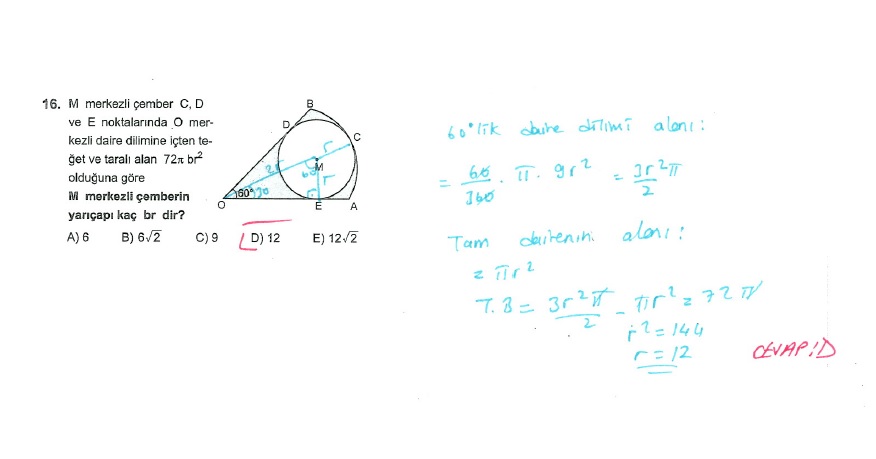 16. M merkezli çember C, D
ve E noktalarında O mer-
kezli daire dilimine içten te-
ğet ve taralı alan 72π br²
olduğuna göre
M merkezli çemberin
yarıçapı kaç br dir?
A) 6 B) 6√2 C) 9 D) 12 E) 12√2
B
D
C
r
2r
M
60
r
60° 30
O
E
A
60°lik daire dilimi alanı:
= 60/360 · π · 9r² = 3r²π/2
Tam dairenin alanı:
= πr²
T.B = 3r²π/2 - πr² = 72π
r² = 144
r = 12
CEVAP: D